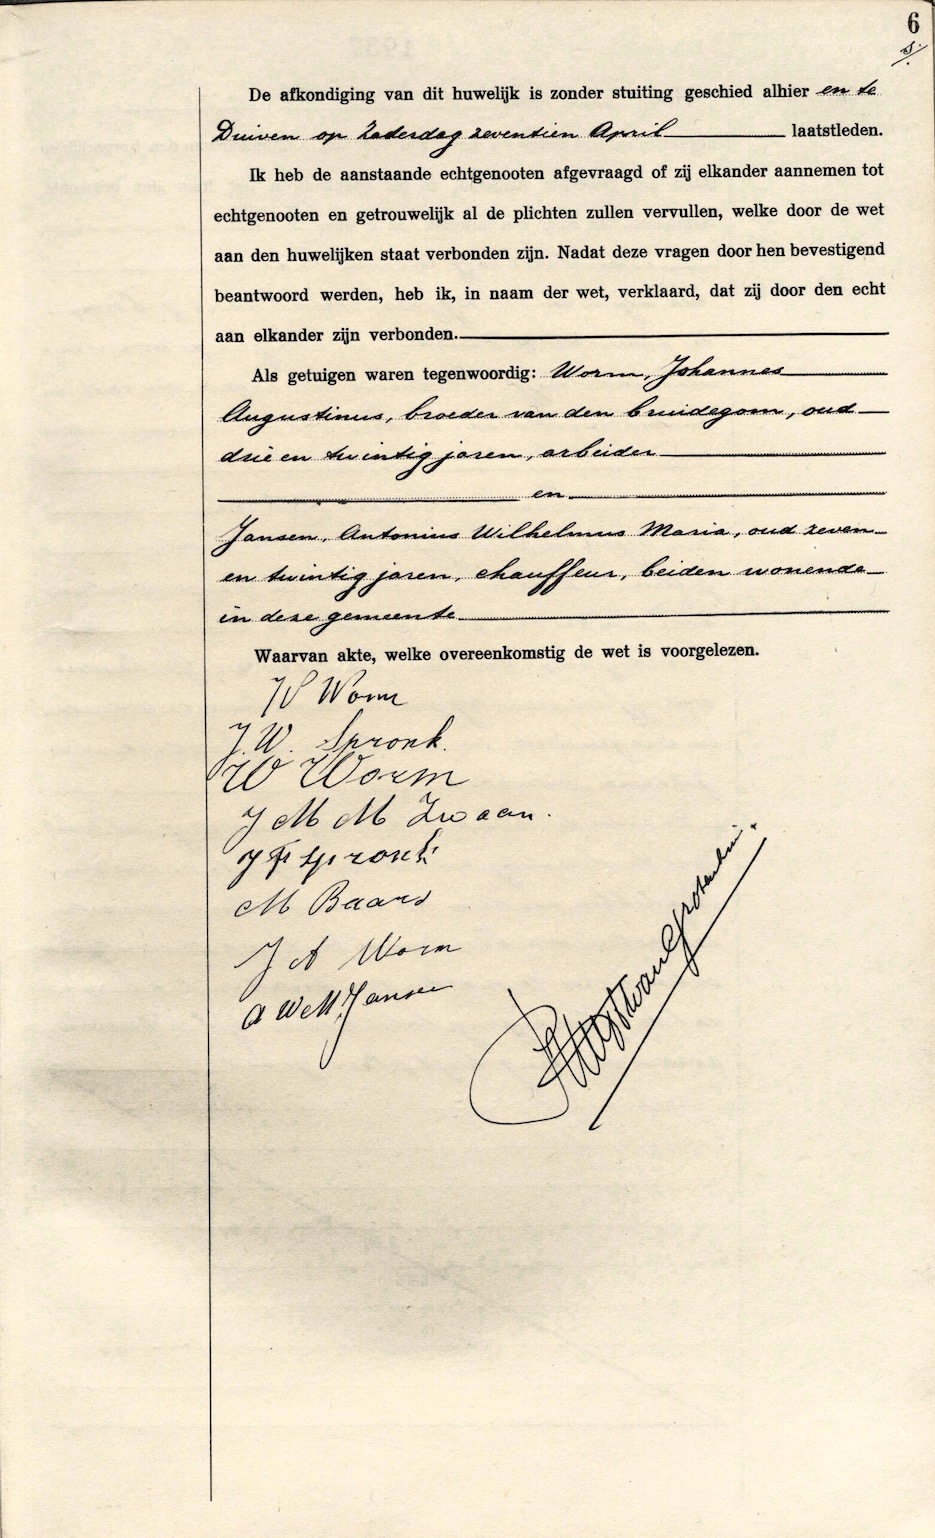 6
De afkondiging van dit huwelijk is zonder stuiting geschied alhier en te
Duiven op Zaterdag zeventien April laatstleden.
Ik heb de aanstaande echtgenooten afgevraagd of zij elkander aannemen tot
echtgenooten en getrouwelijk al de plichten zullen vervullen, welke door de wet
aan den huwelijken staat verbonden zijn. Nadat deze vragen door hen bevestigend
beantwoord werden, heb ik, in naam der wet, verklaard, dat zij door den echt
aan elkander zijn verbonden.
Als getuigen waren tegenwoordig: Worm, Johannes
Augustinus, broeder van den bruidegom, oud
drie en twintig jaren, arbeider
en
Jansen, Antonius Wilhelmus Maria, oud zeven
en twintig jaren, chauffeur, beiden wonende
in deze gemeente
Waarvan akte, welke overeenkomstig de wet is voorgelezen.
Worm
J. W. Spronk.
W Worm
J M M Zwaan.
J F Spronk
M Baars
J A Worm
A W M Jansen